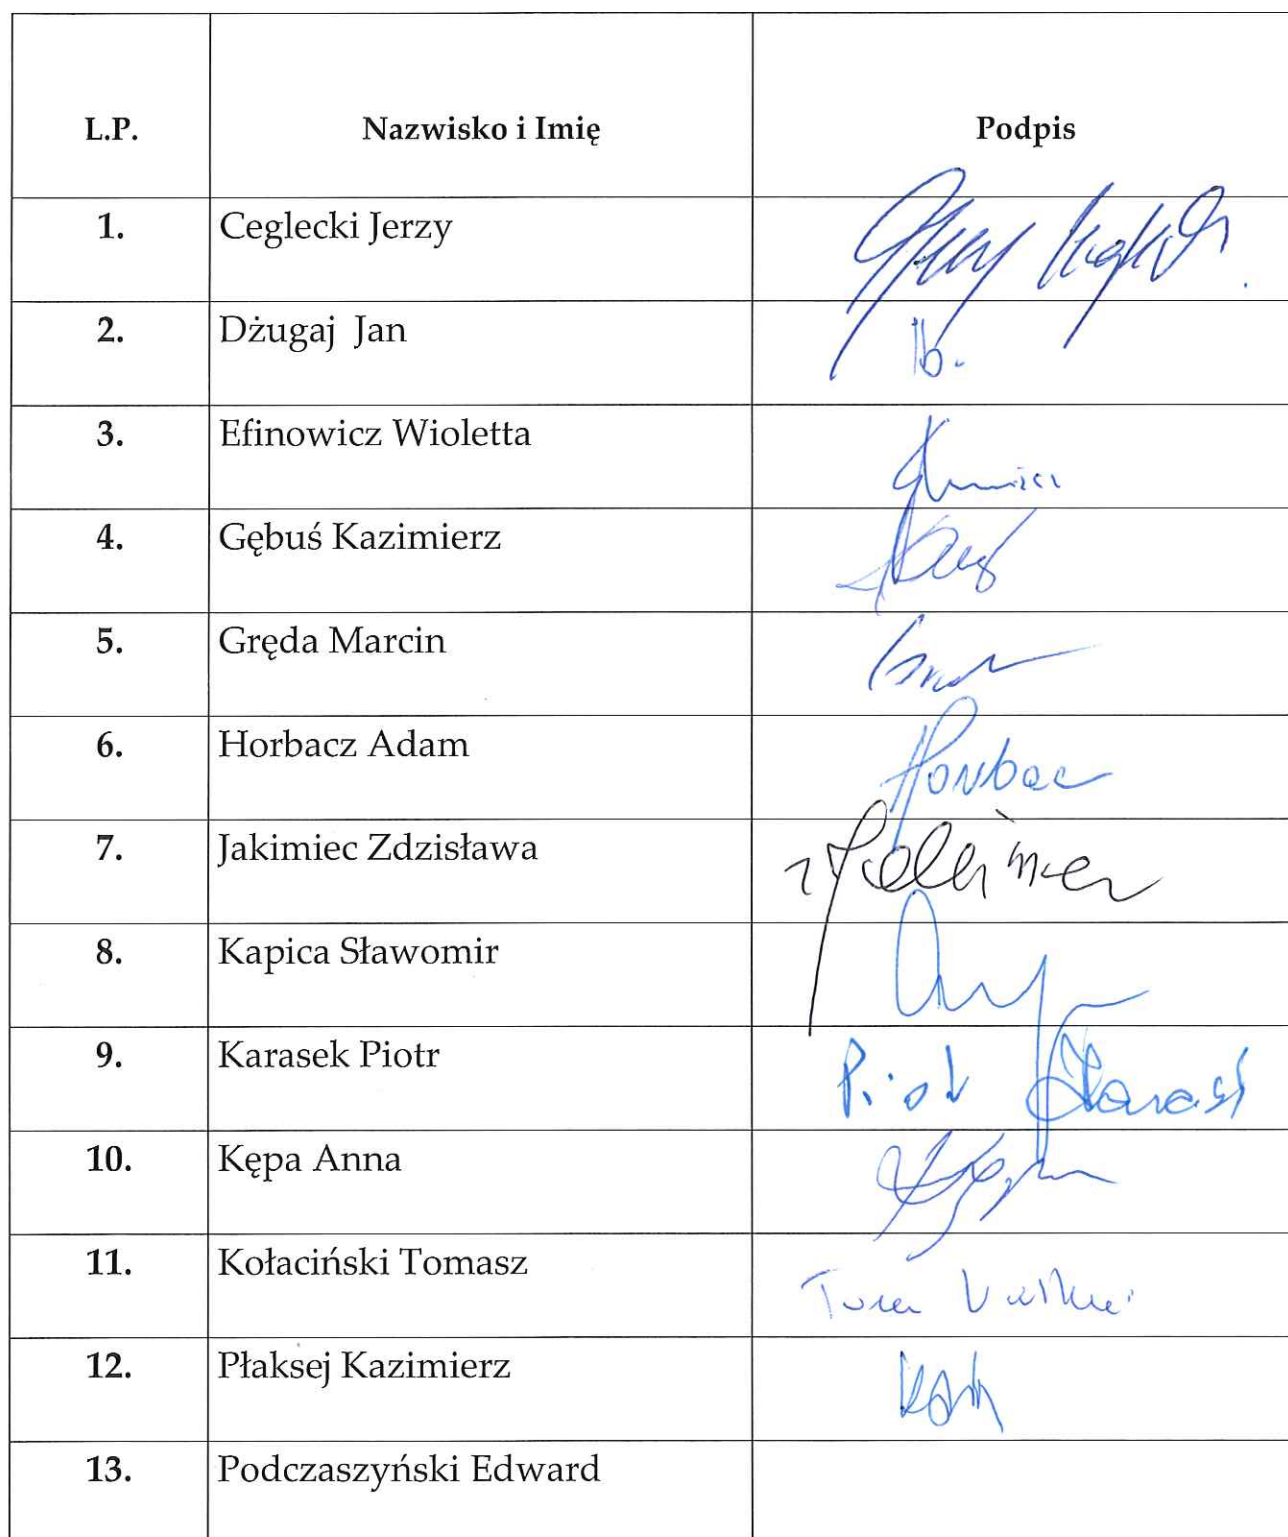 L.P. Nazwisko i Imię Podpis
1. Ceglecki Jerzy
2. Dżugaj Jan
3. Efinowicz Wioletta
4. Gębuś Kazimierz
5. Gręda Marcin
6. Horbacz Adam
7. Jakimiec Zdzisława
8. Kapica Sławomir
9. Karasek Piotr Piotr
10. Kępa Anna
11. Kołaciński Tomasz
12. Płaksej Kazimierz
13. Podczaszyński Edward